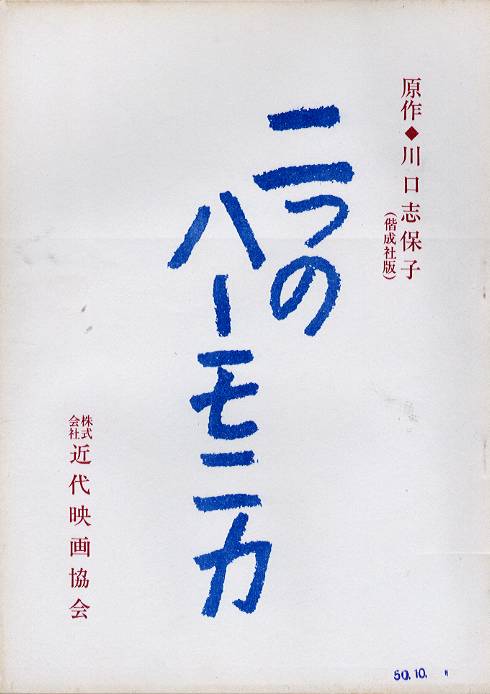 原作◆川口志保子
(偕成社版)
二つの
ハーモニカ
株式会社 近代映画協会
50.10.